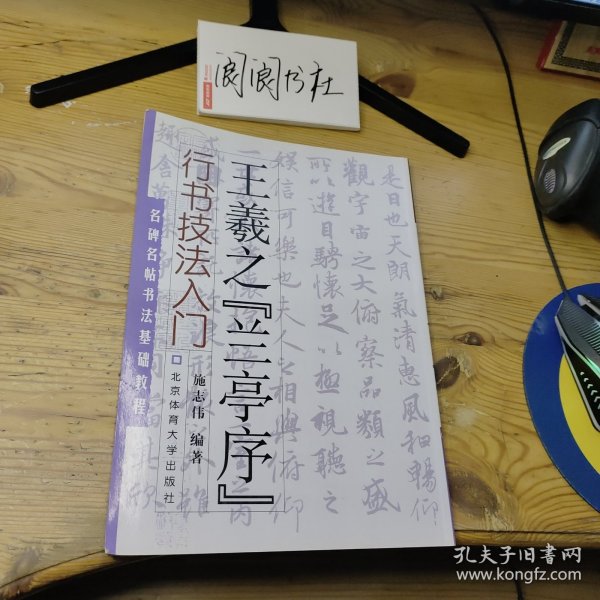 阆阆书社
王羲之『兰亭序』
行书技法入门
名碑名帖书法基础教程
施志伟 编著
北京体育大学出版社
是日也天朗氣清惠風和暢仰
觀宇宙之大俯察品類之盛
所以遊目騁懷足以極視聽之
娛信可樂也夫人之相與俯仰
孔夫子旧书网
www.kongfz.com